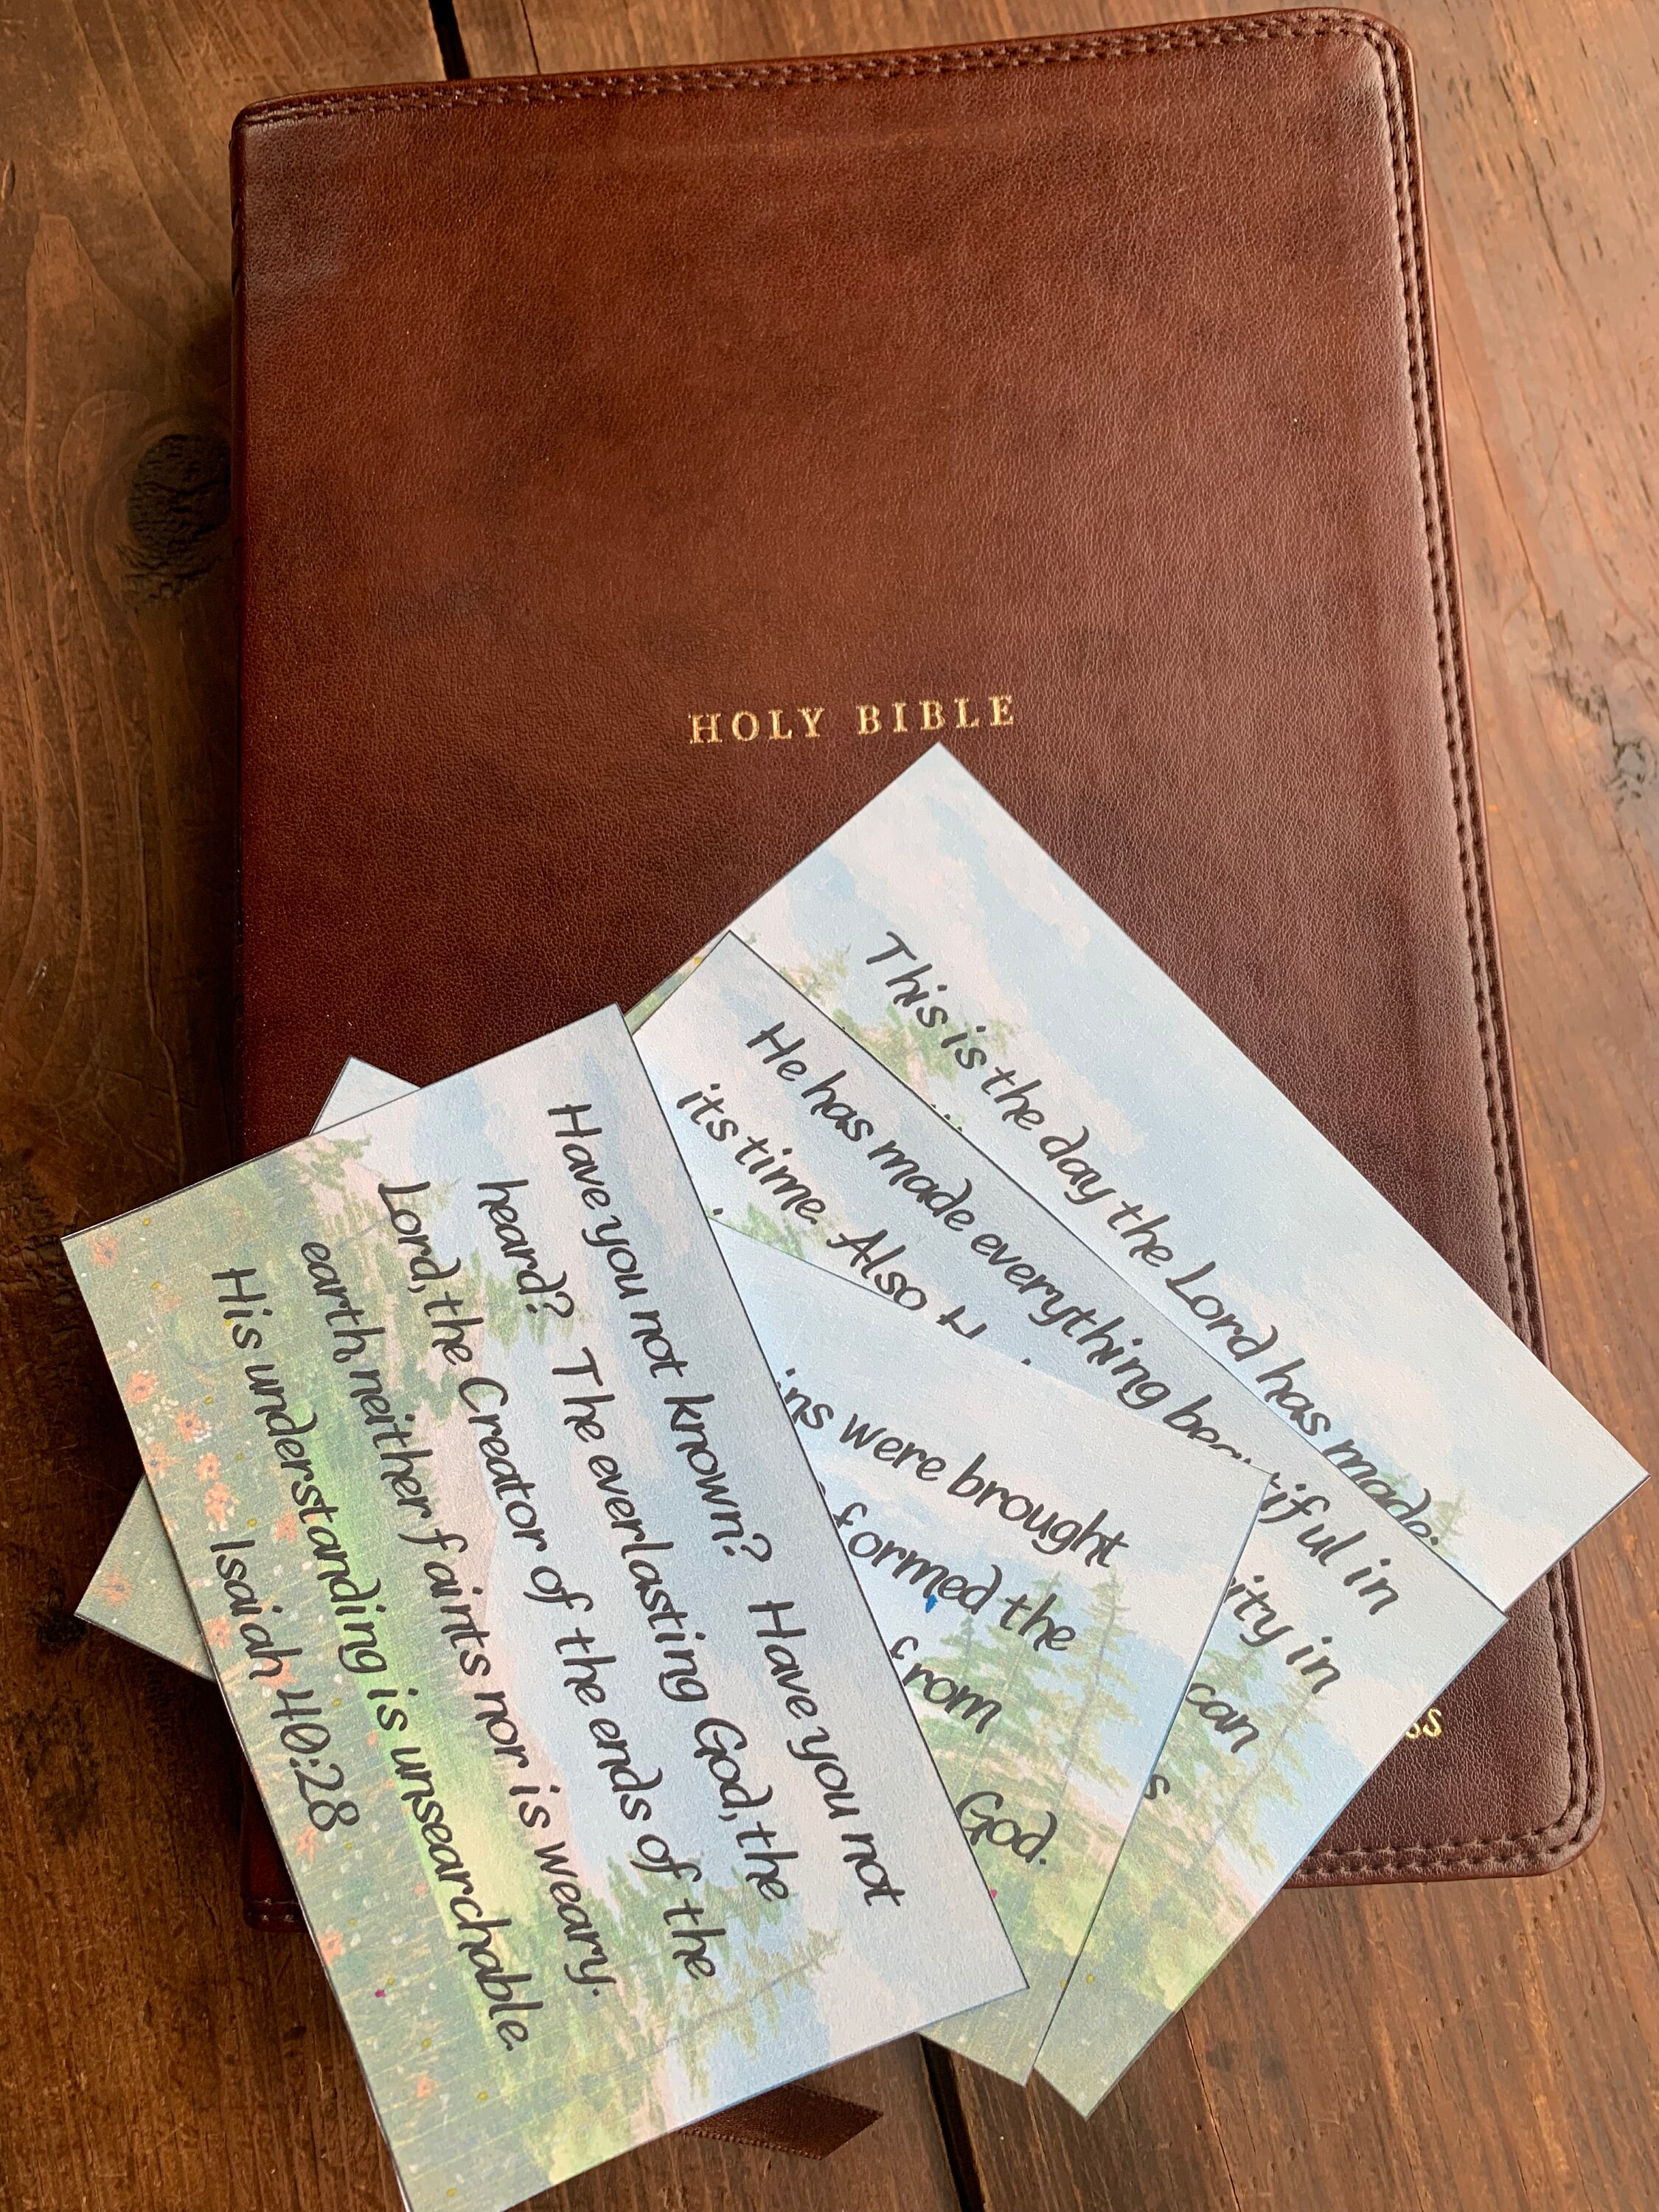 HOLY BIBLE
This is the day the Lord has made;
He has made everything beautiful in
its time. Also
in
can
were brought
formed the
from
God.
Have you not known? Have you not
heard? The everlasting God, the
Lord, the Creator of the ends of the
earth, neither faints nor is weary.
His understanding is unsearchable.
Isaiah 40:28